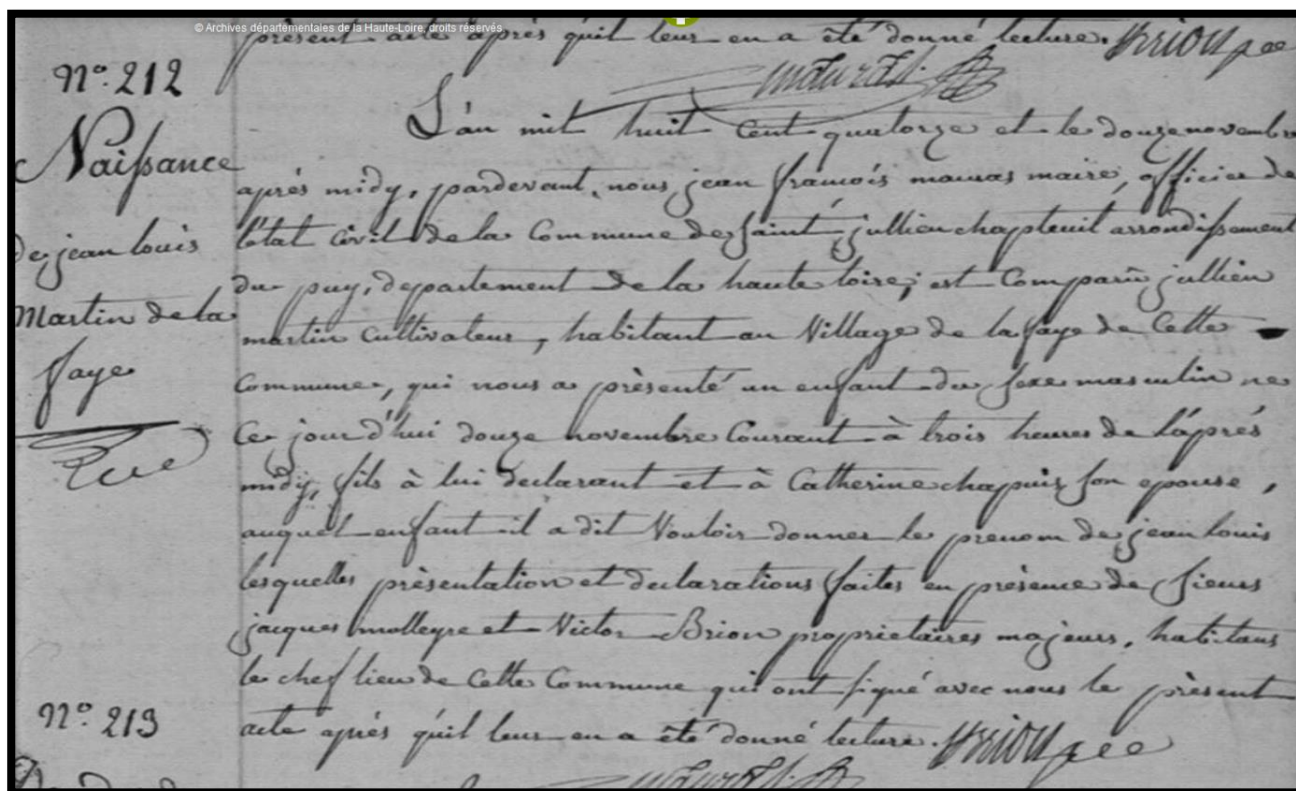 © Archives départementales de la Haute-Loire, droits réservés
présent acte après qu'il leur en a été donné lecture. Brion
N.º 212
Naissance
de jean louis
Martin de la
faye
L'an mil huit cent quatorze et le douze novembre
après midy, pardevant nous jean francois mauras maire, officier de
l'état civil de la Commune de Saint jullien chapteuil arrondissement
du puy, departement de la haute loire; est Comparu jullien
martin Cultivateur, habitant au Village de la faye de Cette
Commune, qui nous a présenté un enfant du sexe masculin né
Ce jourd'hui douze novembre Courant à trois heures de l'après
midy, fils à lui declarant et à Catherine chapuis son epouse,
auquel enfant il a dit Vouloir donner le prenom de jean louis
lesquelles présentation et declarations faites en présence de sieurs
jacques molleyre et Victor Brion proprietaires majeurs, habitans
le chef lieu de Cette Commune qui ont signé avec nous le présent
acte après qu'il leur en a été donné lecture. Brion
N.º 213